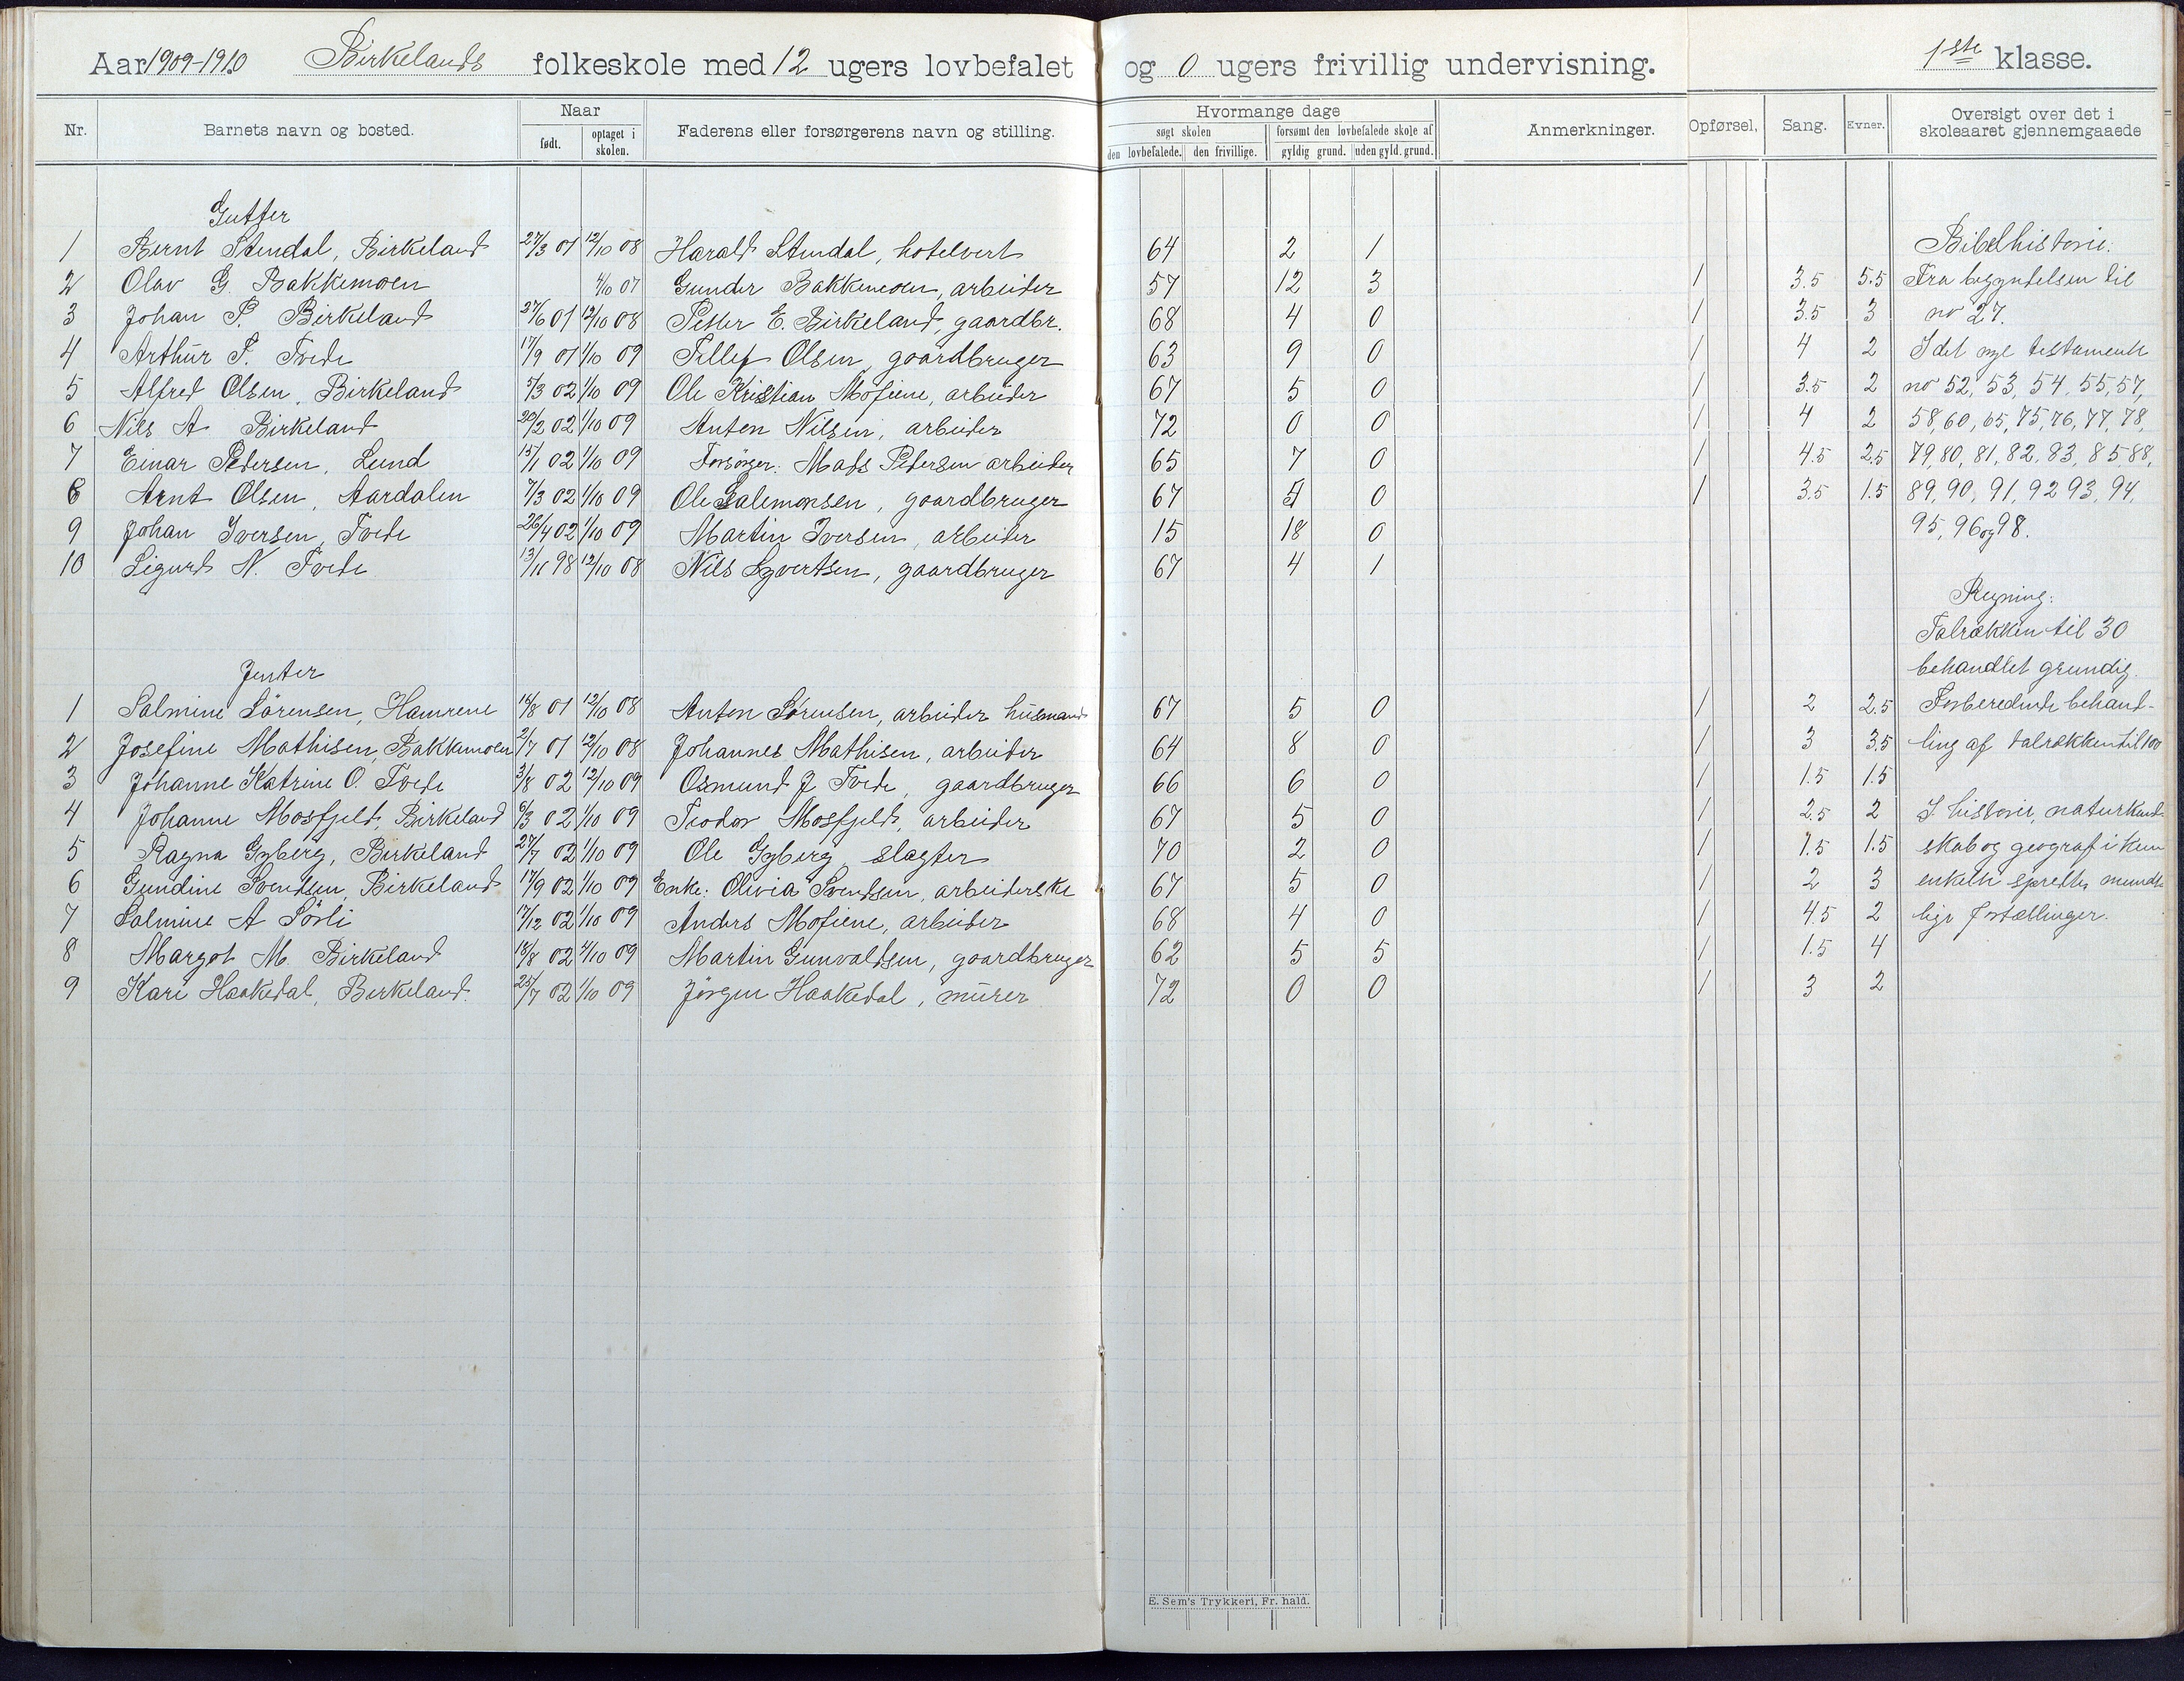 Aar 1909-1910 Birkelands folkeskole med 12 ugers lovbefalet og 0 ugers frivillig undervisning. 1ste klasse.
Nr. Barnets navn og bosted. Naar født. optaget i skolen. Faderens eller forsørgerens navn og stilling. Hvormange dage søgt skolen den lovbefalede. den frivillige. forsømt den lovbefalede skole af gyldig grund. uden gyld. grund. Anmerkninger. Opførsel. Sang. Evner. Oversigt over det i skoleaaret gjennemgaaede
Gutter
1 Bernt Stendal, Birkeland 27/3 01 12/10 08 Harald Stendal, hotelvert 64 2 1 Bibelhistorie.
2 Olav G. Bakkemoen 4/10 07 Gunder Bakkemoen, arbeider 57 12 3 1 3.5 5.5 Fra begyndelsen til
3 Johan P. Birkeland 27/6 01 12/10 08 Peter E. Birkeland, gaardbr. 68 4 0 1 3.5 3 no 27.
4 Arthur T. Tvede 17/9 01 1/10 09 Tellef Olsen, gaardbruger 63 9 0 1 4 2 I det nye testamente
5 Alfred Olsen, Birkeland 7/3 02 1/10 09 Ole Kristian Mofiene, arbeider 67 5 0 1 3.5 2 no 52, 53, 54, 55, 57,
6 Nils A Birkeland 20/2 02 1/10 09 Anton Nilsen, arbeider 72 0 0 1 4 2 58, 60, 65, 75, 76, 77, 78,
7 Einar Petersen, Lund 15/1 02 1/10 09 Forsörger: Mads Petersen arbeider 65 7 0 1 4.5 2.5 79, 80, 81, 82, 83, 85 88,
8 Arnt Olsen, Aardalen 7/3 02 1/10 09 Ole Salemonsen, gaardbruger 67 5 0 1 3.5 1.5 89, 90, 91, 92 93, 94,
9 Johan Iversen, Tvede 26/4 02 1/10 09 Martin Iversen, arbeider 15 18 0 95, 96 og 98.
10 Sigurd N. Tvede 13/11 98 12/10 08 Nils Syvertsen, gaardbruger 67 4 1
Regning:
Talrækken til 30
Jenter
behandlet grundig.
1 Salmine Sörensen, Hamrene 14/8 01 12/10 08 Anton Sörensen, arbeider husmand 67 5 0 1 2 2.5 Forberedende behand-
2 Josefine Mathisen, Bakkemoen 2/7 01 12/10 08 Johannes Mathisen, arbeider 64 8 0 1 3 3.5 ling af talrækken til 100
3 Johanne Katrine O. Tvede 3/8 02 12/10 09 Osmund J Tvede, gaardbruger 66 6 0 1 1.5 1.5
4 Johanne Mosfjeld, Birkeland 6/3 02 1/10 09 Teodor Mosfjeld, arbeider 67 5 0 1 2.5 2 I historie, naturkund-
5 Ragna Gyberg, Birkeland 27/7 02 1/10 09 Ole Gyberg, slagter 70 2 0 1 1.5 1.5 skab og geografi kun
6 Gundine Svendsen, Birkeland 17/9 02 1/10 09 Enke: Olivia Svendsen, arbeiderske 67 5 0 1 2 3 enkelte spredte mundt-
7 Salmine A Sörli 17/12 02 1/10 09 Anders Mofiene, arbeider 68 4 0 1 4.5 2 lige fortællinger.
8 Margot M. Birkeland 18/8 02 4/10 09 Martin Gunvaldsen, gaardbruger 62 5 5 1 1.5 4
9 Kari Haakedal, Birkeland. 25/7 02 1/10 09 Jörgen Haakedal, murer 72 0 0 1 3 2
E. Sem's Trykkeri, Fr. hald.